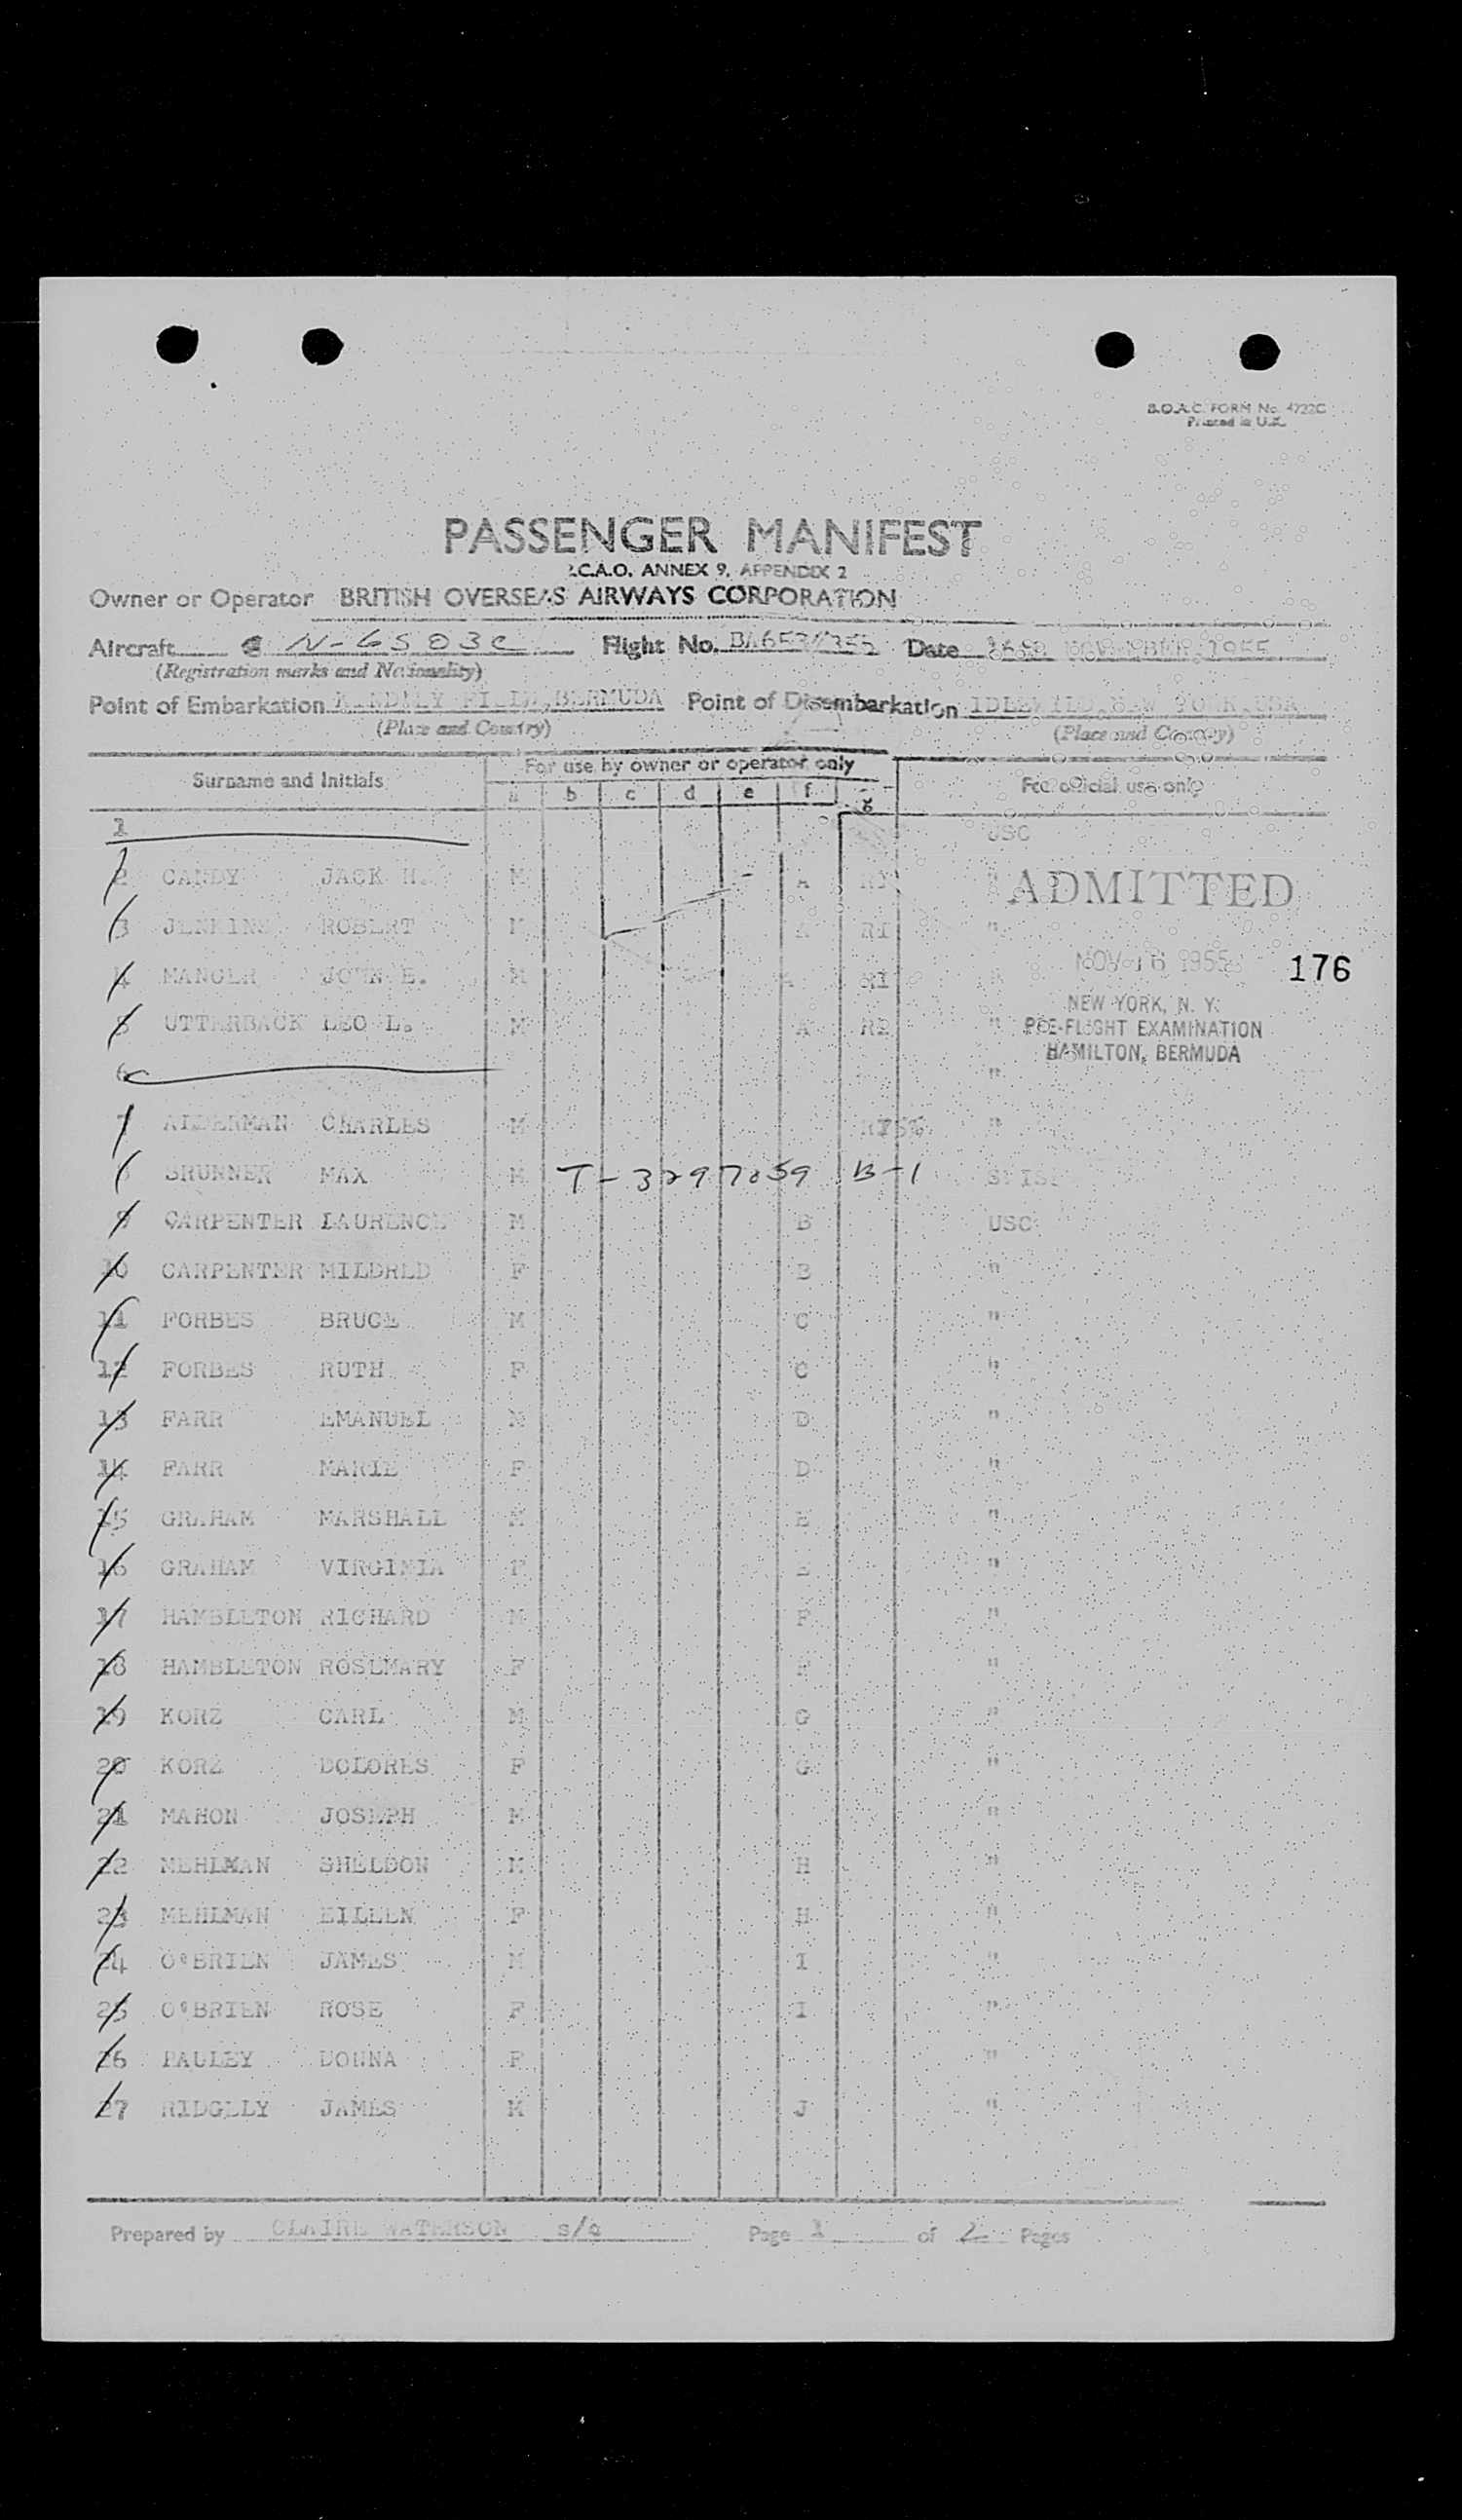 B.O.A.C. FORM No. 4722C
Printed in U.K.
PASSENGER MANIFEST
I.C.A.O. ANNEX 9, APPENDIX 2
Owner or Operator BRITISH OVERSEAS AIRWAYS CORPORATION
Aircraft N-6503C Flight No. Date 16th NOVEMBER, 1955
(Registration marks and Nationality)
Point of Embarkation KINDLEY FIELD, BERMUDA Point of Disembarkation IDLEWILD, NEW YORK, USA
(Place and Country) (Place and Country)
Surname and Initials For use by owner or operator only For official use only
a b c d e f g
1 USC
2 CANDY JACK H. M A RI
ADMITTED
3 JENKINS ROBERT M A RI "
4 MANGER JOHN E. M A RI
NOV 16 1955 176
NEW YORK, N. Y.
5 UTTERBACK LEO L. M A RI "
PRE-FLIGHT EXAMINATION
HAMILTON, BERMUDA
6 "
7 ALDERMAN CHARLES M "
8 BRUNNER MAX M T-3297059 B-1
9 CARPENTER LAURENCE M B USC
10 CARPENTER MILDRED F B "
11 FORBES BRUCE M C "
12 FORBES RUTH F C "
13 FARR EMANUEL M D "
14 FARR MARIE F D "
15 GRAHAM MARSHALL M E "
16 GRAHAM VIRGINIA F E "
17 HAMBLETON RICHARD M F "
18 HAMBLETON ROSEMARY F F "
19 KORZ CARL M G "
20 KORZ DOLORES F G "
21 MAHON JOSEPH M "
22 MEHLMAN SHELDON M H "
23 MEHLMAN EILEEN F H "
24 O'BRIEN JAMES M I "
25 O'BRIEN ROSE F I "
26 PAULEY DONNA F "
27 RIDGELY JAMES M J "
Prepared by CLAIRE WATERSON s/a Page 1 of 2 Pages